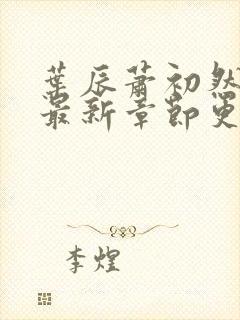 葉辰蕭初然
最新章節更
李煌